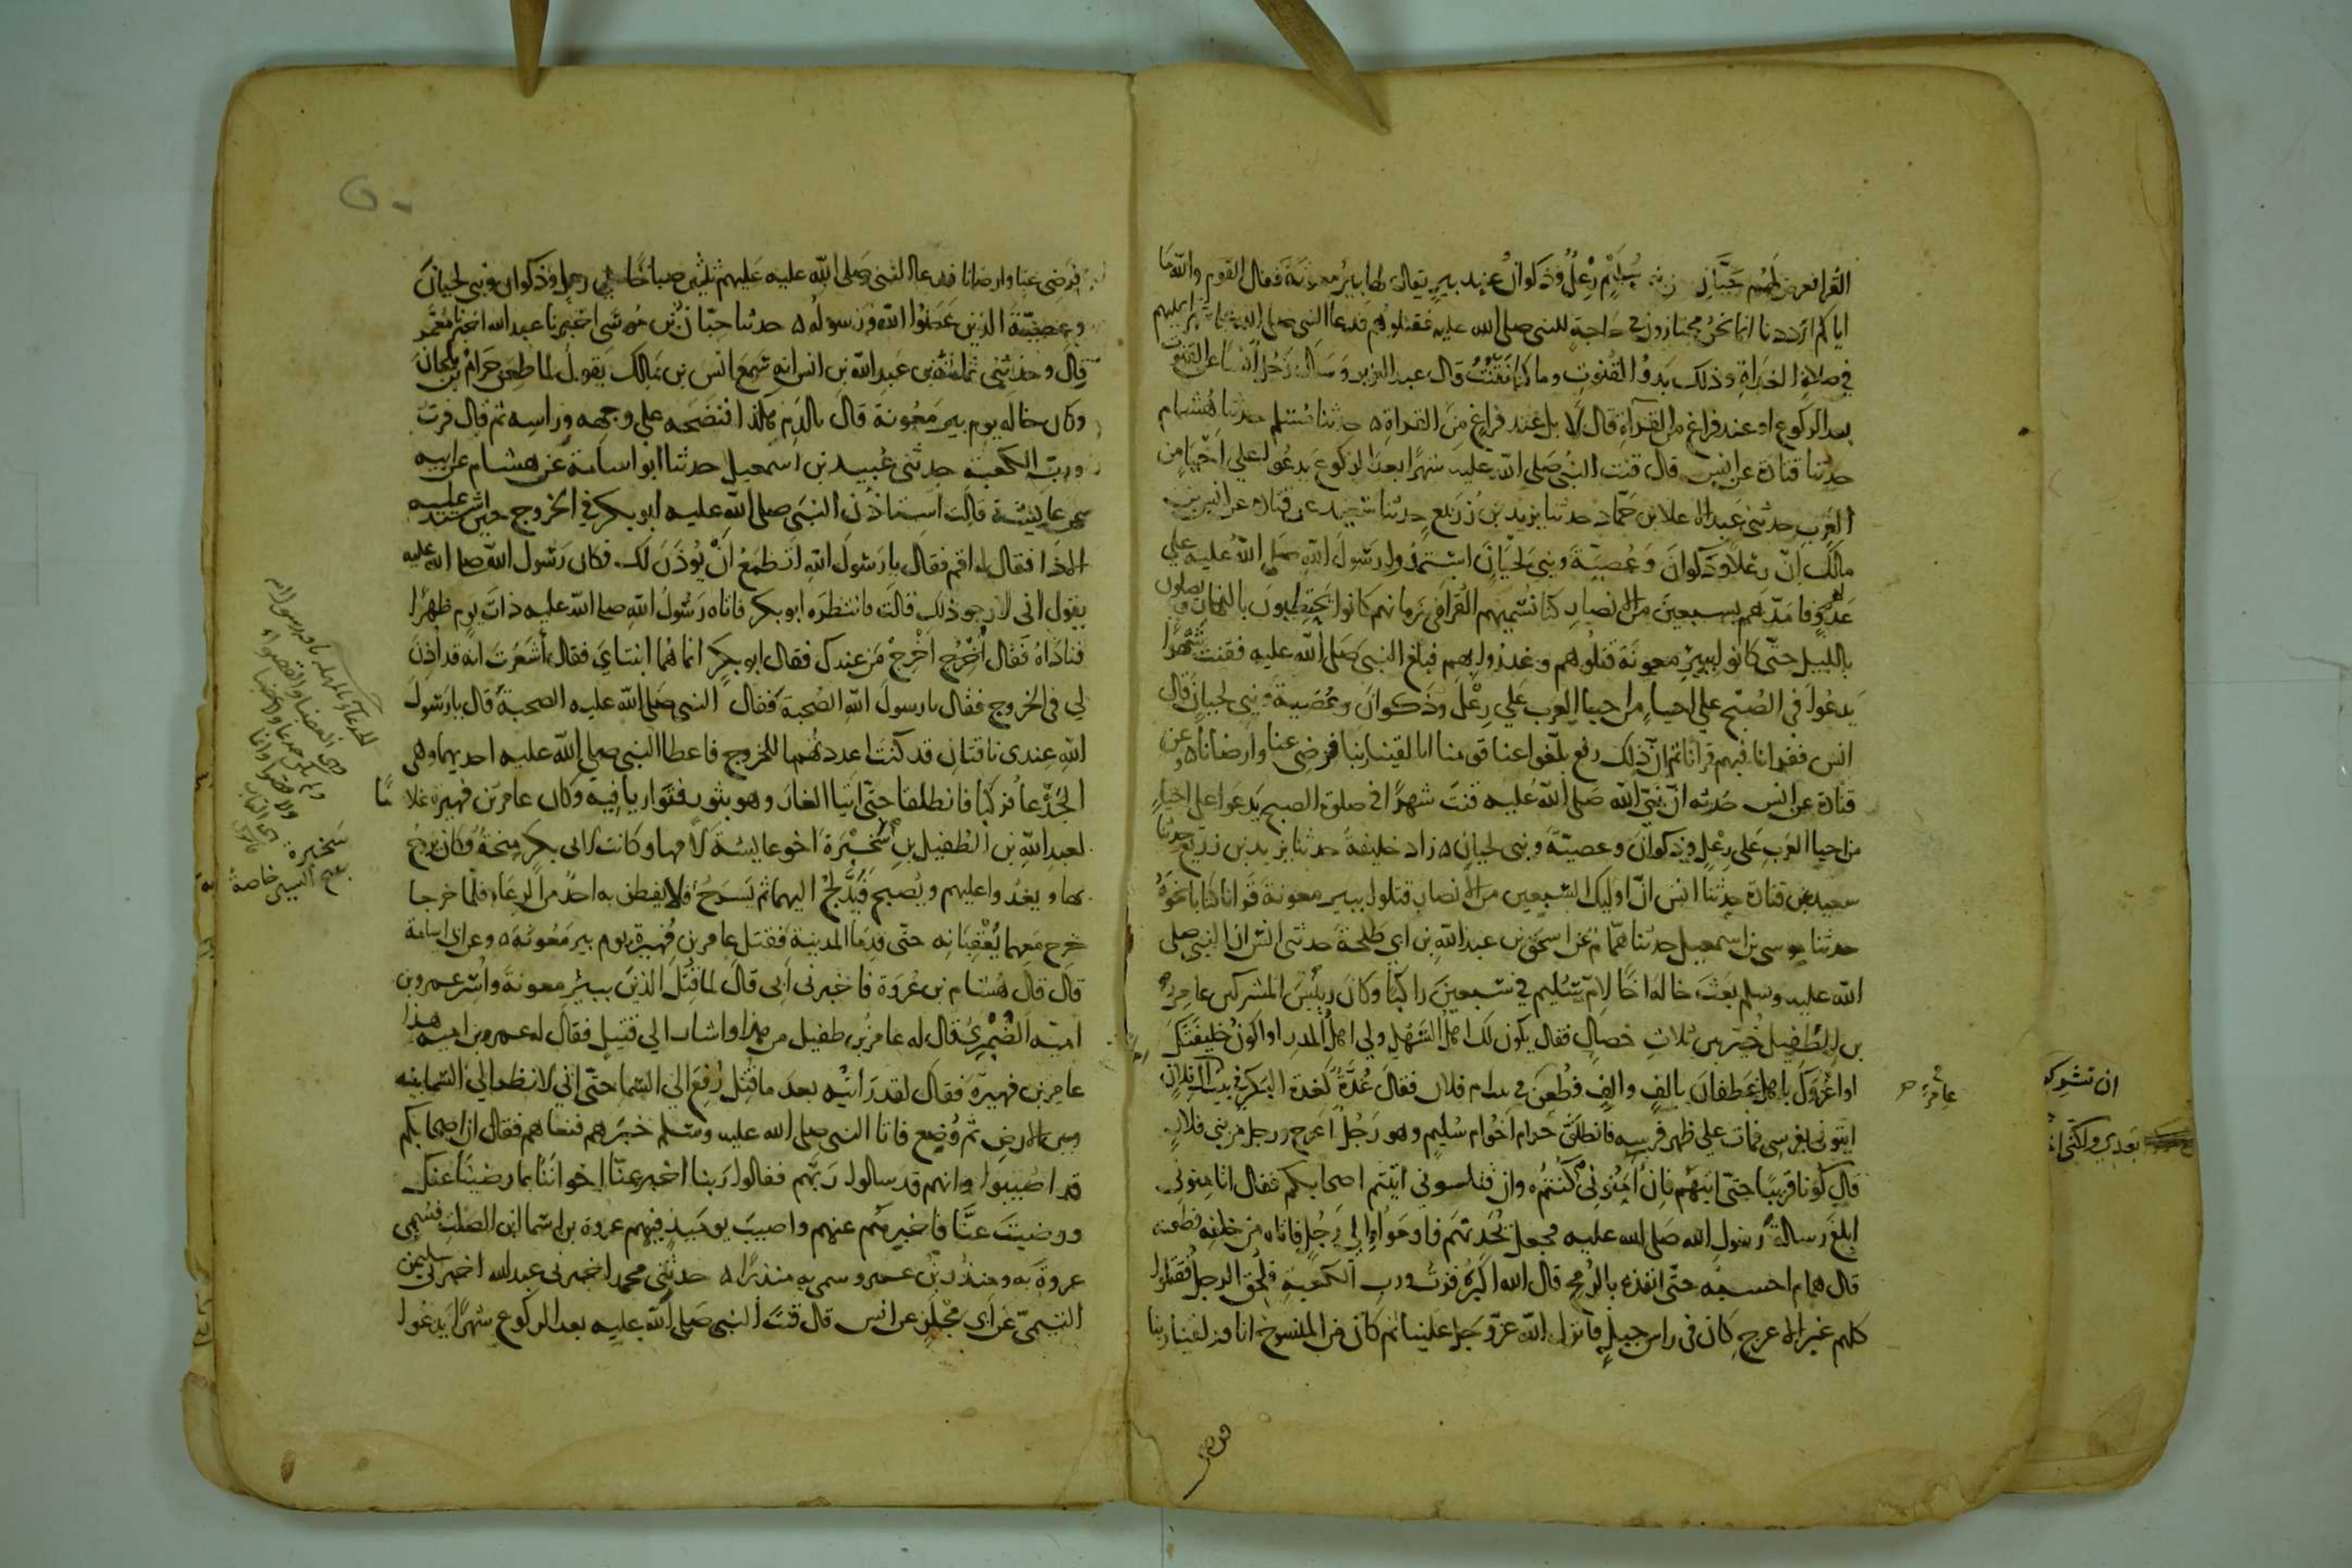 القرا فعرض لهم حيان من سليم رعل وذكوان عند بير يقال لها بير معونة فقال القوم والله ما
اياكم اردنا انما نحن مجتازون في حاجة للنبي صلى الله عليه فقتلوهم فدعا النبي صلى الله عليه عليهم
في صلاة الغداة وذلك بدو القنوت وما كنا نقنت قال عبد العزيز وسال رجل انسا عن القنوت
بعد الركوع او عند فراغ من القراة قال لا بل عند فراغ من القراة ه حدثنا مسلم حدثنا هشام
حدثنا قتادة عن انس قال قنت النبي صلى الله عليه شهرا بعد الركوع يدعوا على احيا من
العرب حدثني عبد الاعلا بن حماد حدثنا يزيد بن زريع حدثنا سعيد عن قتادة عن انس بن
مالك ان رعلا وذكوان وعصية وبني لحيان استمدوا رسول الله صلى الله عليه على
عدو فامدهم بسبعين من الانصار كنا نسميهم القرا في زمانهم كانوا يحتطبون بالنهار ويصلون
بالليل حتى كانوا ببير معونة قتلوهم وغدروا بهم فبلغ النبي صلى الله عليه فقنت شهرا
يدعوا في الصبح على احياء من احيا العرب على رعل وذكوان وعصية وبني لحيان قال
انس فقرانا فيهم قرانا ثم ان ذلك رفع بلغوا عنا قومنا انا لقينا ربنا فرضي عنا وارضانا ه وعن
قتادة عن انس حدثه ان نبي الله صلى الله عليه قنت شهرا في صلوة الصبح يدعوا على احياء
من احيا العرب على رعل وذكوان وعصية وبني لحيان ه زاد خليفة حدثنا يزيد بن زريع حدثنا
سعيد عن قتادة حدثنا انس ان اوليك السبعين من الانصار قتلوا ببير معونة قرانا كتابا نحوه
حدثنا موسى بن اسمعيل حدثنا همام عن اسحق بن عبد الله بن ابي طلحة حدثني انس ان النبي صلى
الله عليه وسلم بعث خاله اخا لام سليم في سبعين راكبا وكان رييس المشركين عامر
بن الطفيل خير بين ثلاث خصال فقال يكون لك اهل السهل ولي اهل المدر او اكون خليفتك
او اغزوك باهل غطفان بالف والف فطعن في بيت ام فلان فقال غدة كغدة البكر في بيت ال فلان
ايتوني بفرسي فمات على ظهر فرسه فانطلق حرام اخو ام سليم وهو رجل اعرج ورجل من بني فلان
قال كونا قريبا حتى اتيهم فان امنوني كنتم وان قتلوني اتيتم اصحابكم فقال اتامنوني
ابلغ رسالة رسول الله صلى الله عليه فجعل يحدثهم فاوموا الى رجل فاتاه من خلفه فطعنه
قال همام احسبه حتى انفذه بالرمح قال الله اكبر فزت ورب الكعبة فلحق الرجل فقتلوا
كلهم غير الاعرج كان في راس جبل فانزل الله عز وجل علينا ثم كان من المنسوخ انا قد لقينا ربنا
عامر
ان تشركو
بعدي ولكني
فرضي عنا وارضانا فدعا النبي صلى الله عليه عليهم ثلثين صباحا على رعل وذكوان وبني لحيان
وعصية الذين عصوا الله ورسوله ه حدثنا حبان بن موسى اخبرنا عبد الله اخبرنا معمر
قال وحدثني ثمامة بن عبد الله بن انس انه سمع انس بن مالك يقول لما طعن حرام بن ملحان
وكان خاله يوم بير معونة قال بالدم هكذا فنضحه على وجهه وراسه ثم قال فزت
ورب الكعبة حدثني عبيد بن اسمعيل حدثنا ابو اسامة عن هشام عن ابيه
عن عايشة قالت استاذن النبي صلى الله عليه ابو بكر في الخروج حين اشتد عليه
الاذا فقال له اقم فقال يا رسول الله اتطمع ان يوذن لك فكان رسول الله صلى الله عليه
يقول اني لارجو ذلك قالت فانتظره ابو بكر فاتاه رسول الله صلى الله عليه ذات يوم ظهرا
فناداه فقال اخرج اخرج من عندك فقال ابو بكر انما هما ابنتاي فقال اشعرت انه قد اذن
لي في الخروج فقال يا رسول الله الصحبة فقال النبي صلى الله عليه الصحبة قال يا رسول
الله عندي ناقتان قد كنت اعددتهما للخروج فاعطا النبي صلى الله عليه احديهما وهي
الجدعا فركبا فانطلقا حتى اتيا الغار وهو بثور فتواريا فيه وكان عامر بن فهيرة غلاما
لعبد الله بن الطفيل بن سخبرة اخو عايشة لامها وكانت لابي بكر منحة وكان يروح
بها ويغدوا عليهم ويصبح فيدلج اليهما ثم يسرح فلا يفطن به احد من الرعاء فلما خرجا
خرج معهما يعقبانه حتى قدما المدينة فقتل عامر بن فهيرة يوم بير معونة ه وعن ابي اسامة
قال قال هشام بن عروة فاخبرني ابي قال لما قتل الذين ببير معونة واسر عمرو بن
امية الضمري قال له عامر بن طفيل من هذا واشار الى قتيل فقال له عمرو بن امية هذا
عامر بن فهيرة فقال لقد رايته بعد ما قتل رفع الى السما حتى اني لانظر الى السما بينه
وبين الارض ثم وضع فاتا النبي صلى الله عليه وسلم خبرهم فنعاهم فقال ان اصحابكم
قد اصيبوا وانهم قد سالوا ربهم فقالوا ربنا اخبر عنا اخواننا بما رضينا عنك
ورضيت عنا فاخبرهم عنهم واصيب يوميذ فيهم عروة بن اسما ابن الصلت فسمي
عروة به ومنذر بن عمرو سمي به منذرا ه حدثني محمد اخبرني عبد الله اخبرني سليمن
التيمي عن ابي مجلز عن انس قال قنت النبي صلى الله عليه بعد الركوع شهرا يدعوا
سخبرة
خاصة